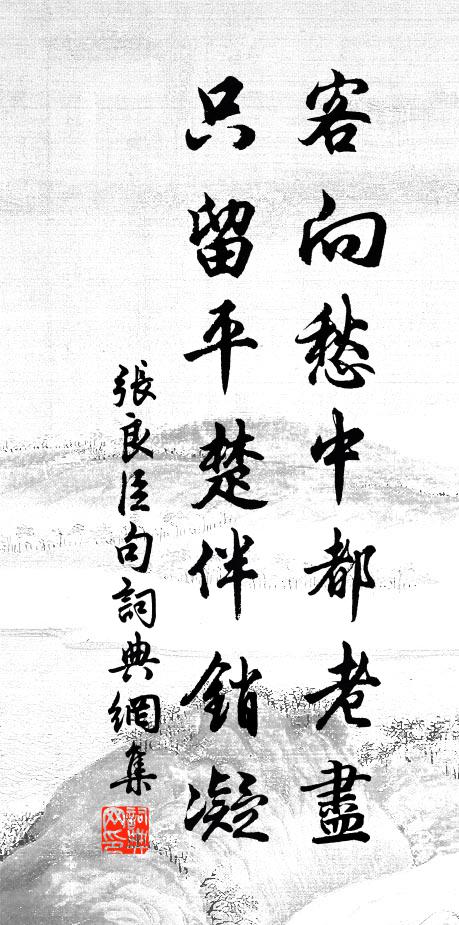 客向愁中都老盡
只留平楚伴銷凝
張良臣句詞典網集